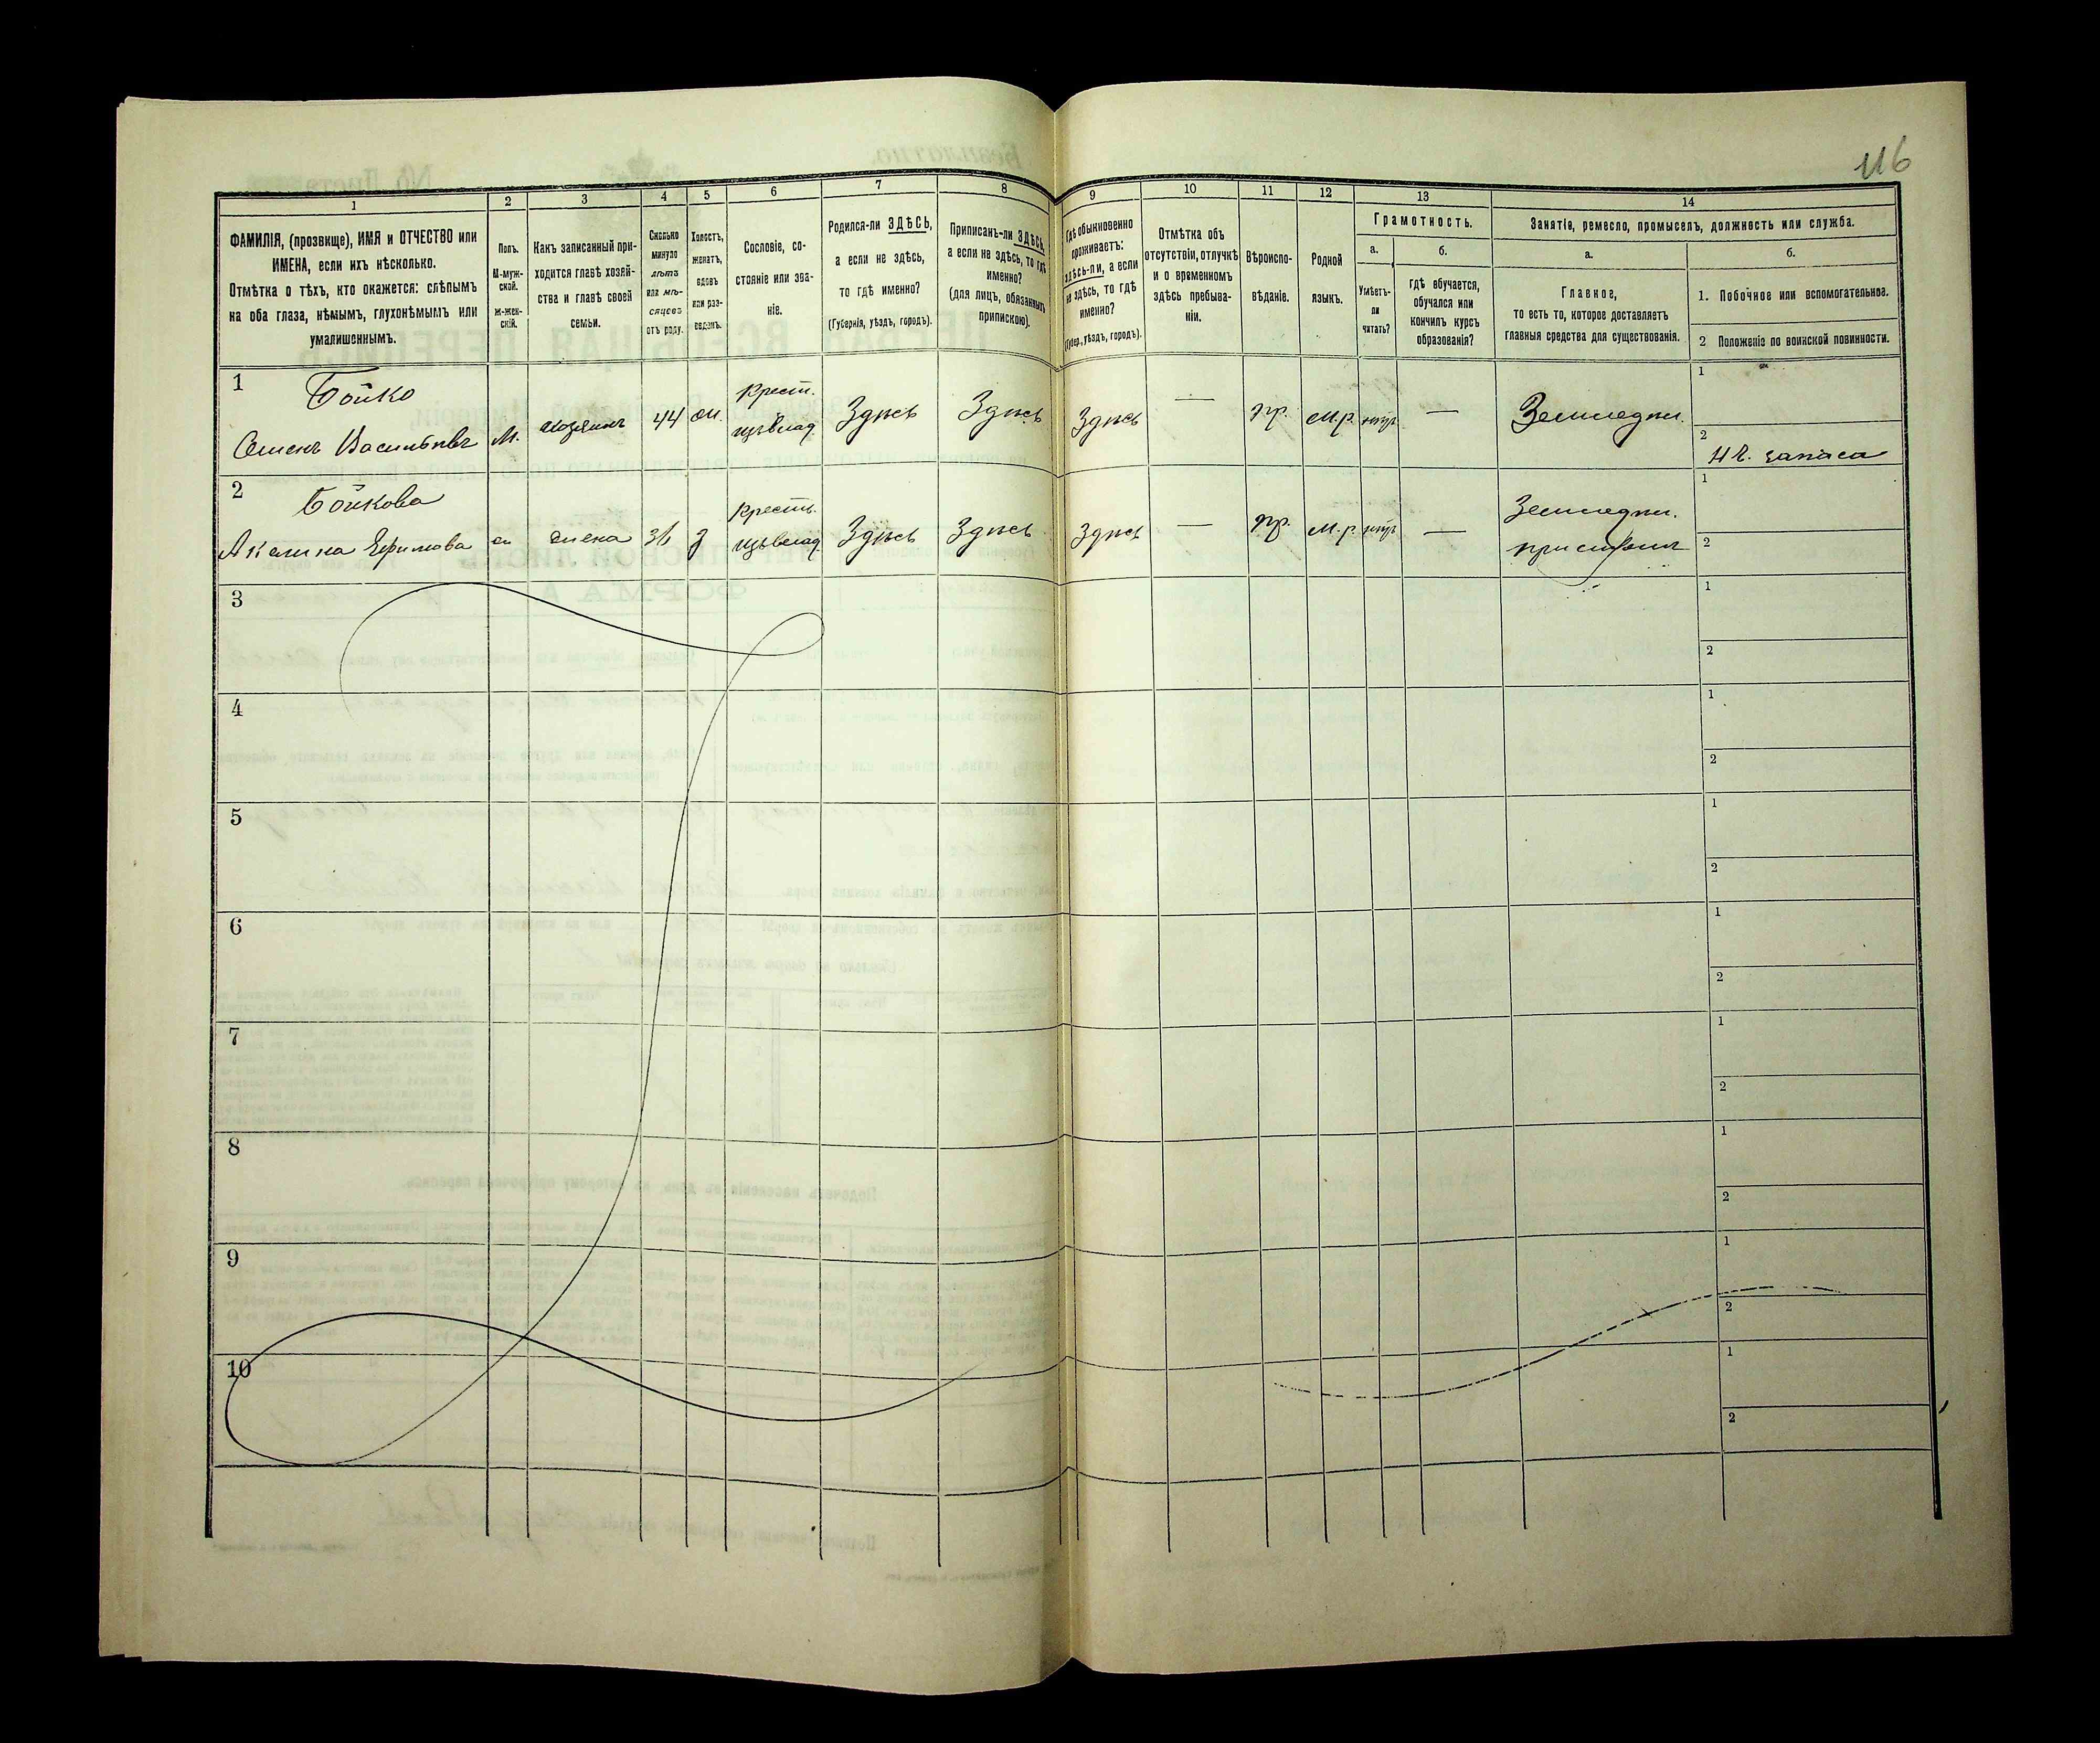 116
1
2
3
4
5
6
7
8
9
10
11
12
13
14
ФАМИЛІЯ, (прозвище), ИМЯ и ОТЧЕСТВО или
ИМЕНА, если ихъ нѣсколько.
Отмѣтка о тѣхъ, кто окажется: слѣпымъ
на оба глаза, нѣмымъ, глухонѣмымъ или
умалишеннымъ.
Полъ.
М-муж-
ской.
Ж-жен-
скій.
Какъ записанный при-
ходится главѣ хозяй-
ства и главѣ своей
семьи.
Сколько
минуло
лѣтъ
или мѣ-
сяцевъ
отъ роду.
Холостъ,
женатъ,
вдовъ
или раз-
веденъ.
Сословіе, со-
стояніе или зва-
ніе.
Родился-ли ЗДѢСЬ,
а если не здѣсь,
то гдѣ именно?
(Губернія, уѣздъ, городъ).
Приписанъ-ли ЗДѢСЬ,
а если не здѣсь, то гдѣ
именно?
(для лицъ, обязанныхъ
припискою).
Гдѣ обыкновенно
проживаетъ:
здѣсь-ли, а если
не здѣсь, то гдѣ
именно?
(Губер., уѣздъ, городъ).
Отмѣтка объ
отсутствіи, отлучкѣ
и о временномъ
здѣсь пребыва-
ніи.
Вѣроиспо-
вѣданіе.
Родной
языкъ.
Грамотность.
а.
Умѣетъ-
ли
читать?
б.
гдѣ обучается,
обучался или
кончилъ курсъ
образованія?
Занятіе, ремесло, промыселъ, должность или служба.
а.
Главное,
то есть то, которое доставляетъ
главныя средства для существованія.
б.
1. Побочное или вспомогательное.
2 Положеніе по воинской повинности.
1
Бойко
Семенъ Васильевъ
М.
хозяинъ
44
Крест.
Здѣсь
Здѣсь
Здѣсь
—
пр.
М.р.
—
Земледѣл.
1
2
запаса
2
Бойкова
Акелина Ефимова
жена
Крестья.
Здѣсь
Здѣсь
Здѣсь
—
пр.
М.р.
—
Земледѣл.
1
2
3
1
2
4
1
2
5
1
2
6
1
2
7
1
2
8
1
2
9
1
2
10
1
2